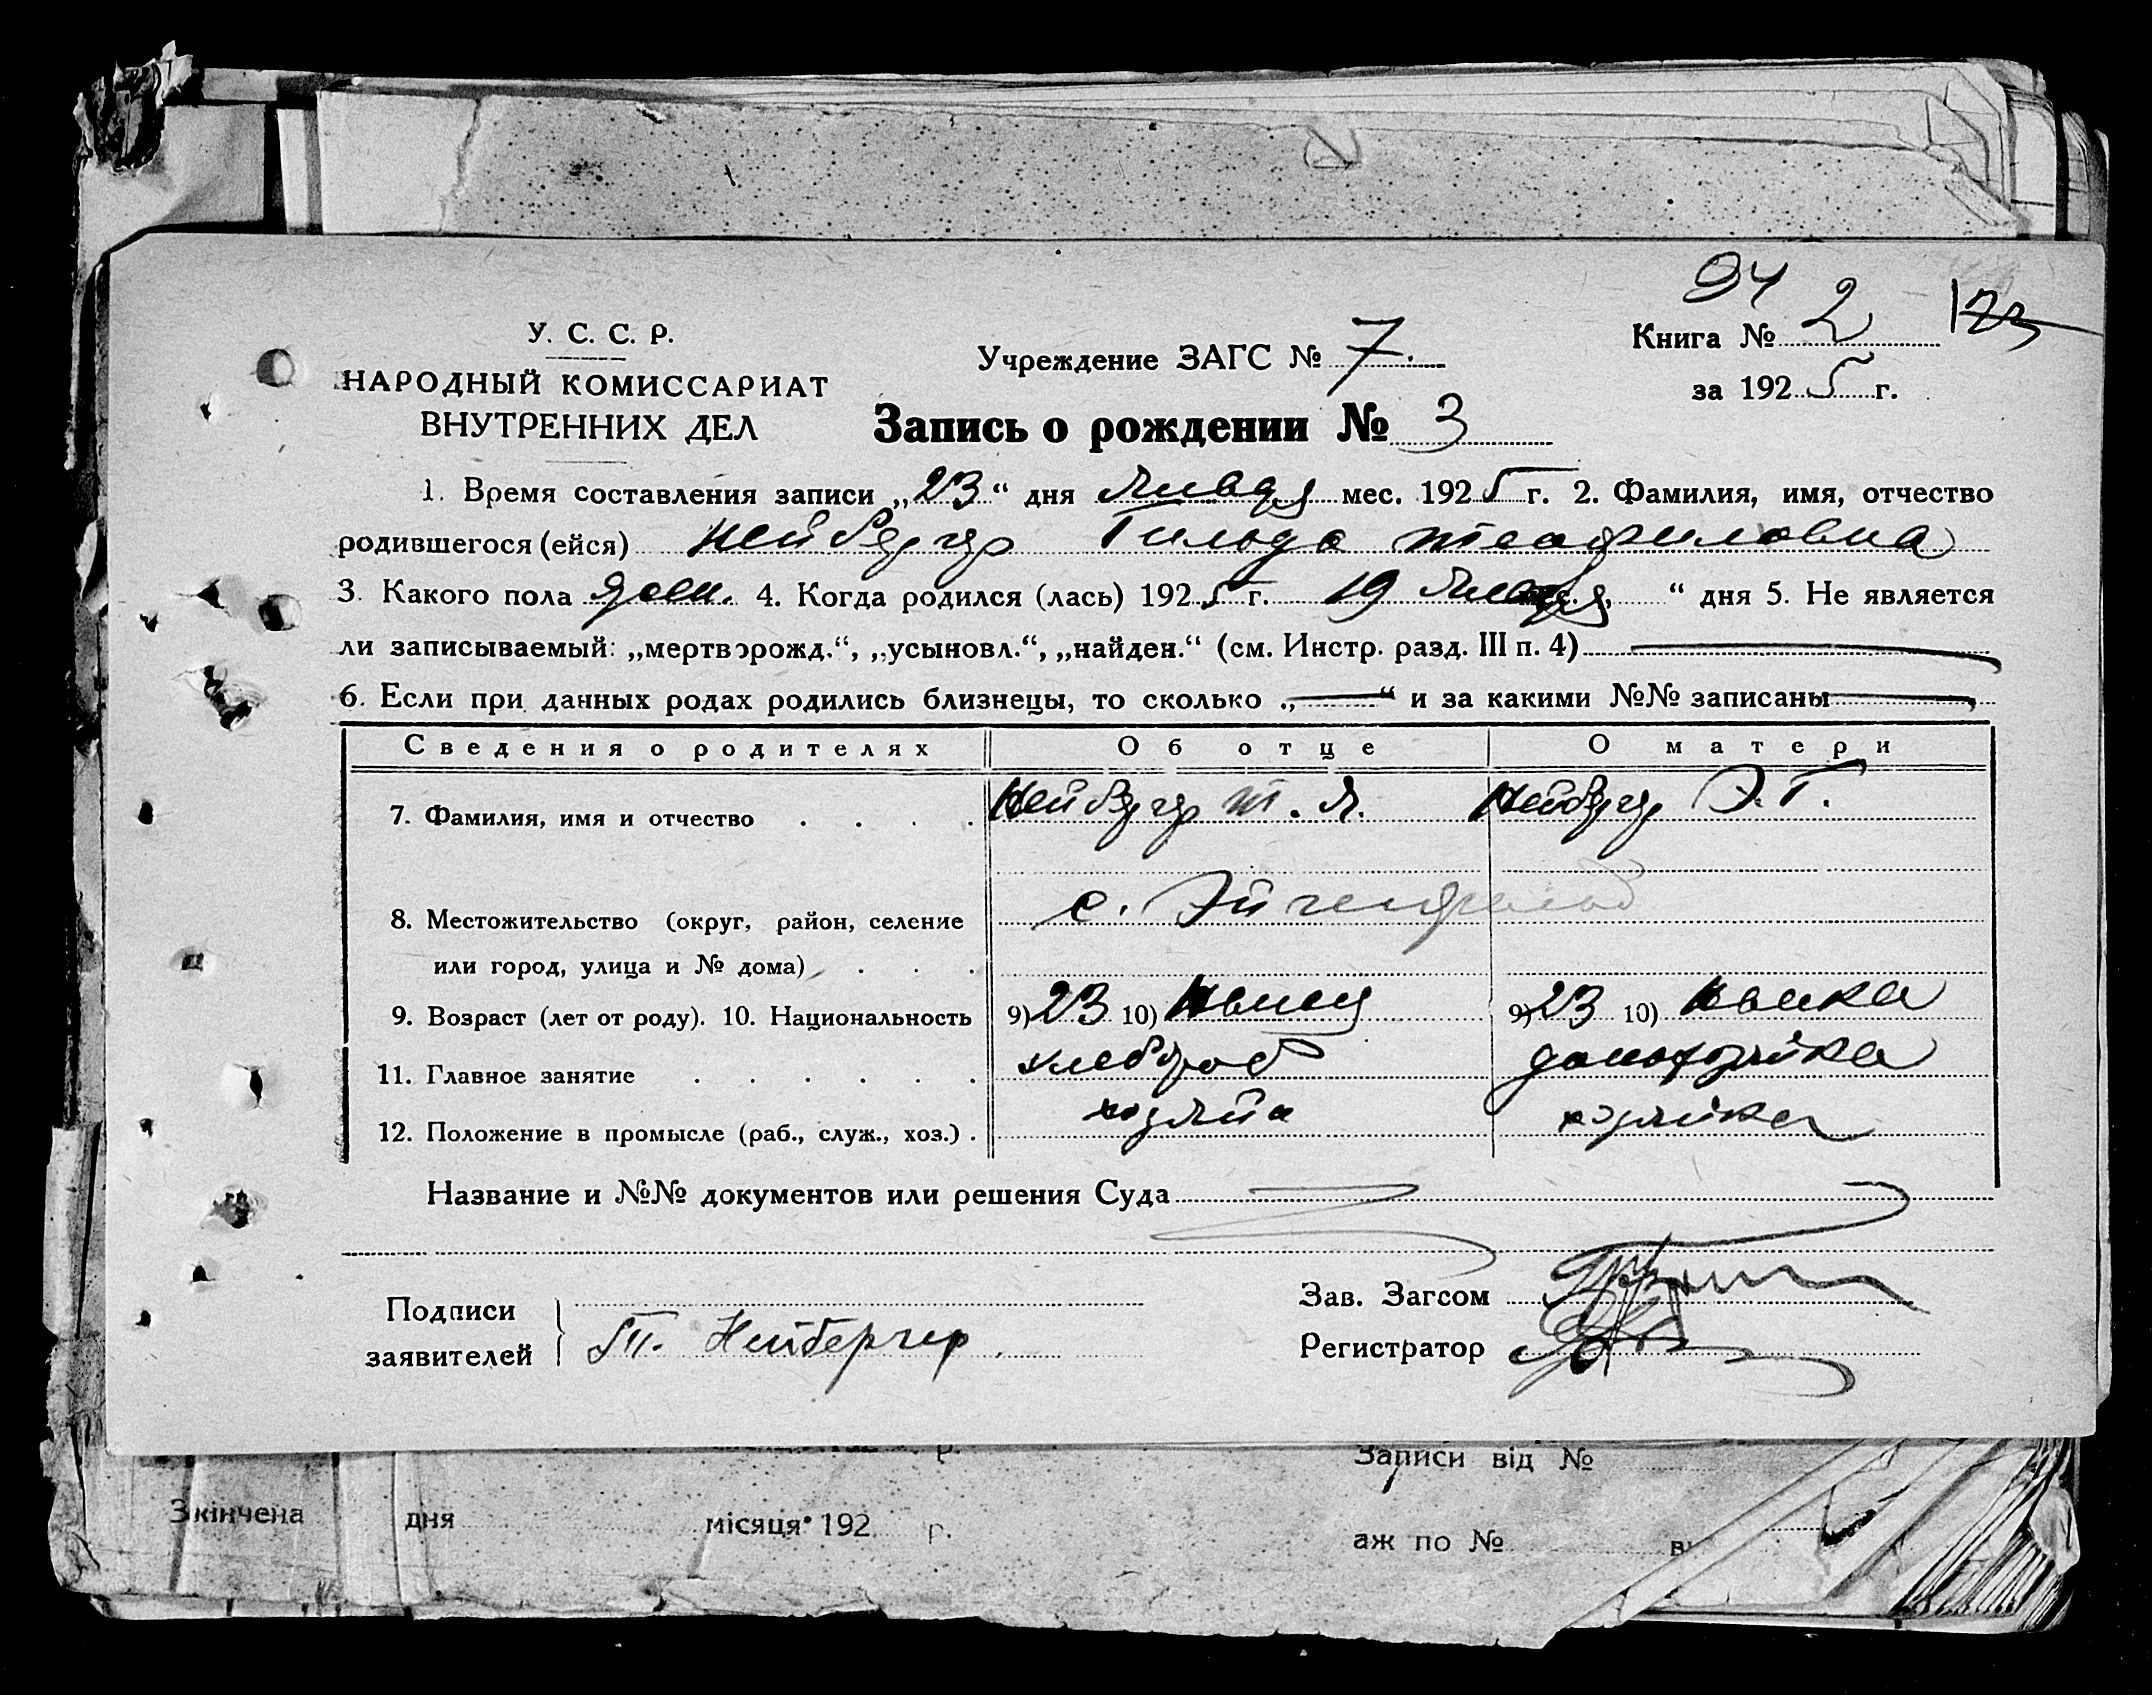 94
У. С. С. Р.
НАРОДНЫЙ КОМИССАРИАТ
ВНУТРЕННИХ ДЕЛ
Учреждение ЗАГС № 7.
Книга № 2 123
за 1925 г.
Запись о рождении № 3
1. Время составления записи „23“ дня Января мес. 1925 г. 2. Фамилия, имя, отчество
родившегося (ейся) Нейбергер Гильда Теофиловна
3. Какого пола жен. 4. Когда родился (лась) 1925 г. 19 Января “ дня 5. Не является
ли записываемый: „мертворожд.“, „усыновл.“, „найден.“ (см. Инстр. разд. III п. 4)
6. Если при данных родах родились близнецы, то сколько „—“ и за какими №№ записаны
Сведения о родителях Об отце О матери
7. Фамилия, имя и отчество . . . . Нейбергер Т. Я. Нейбергер Э. Г.
8. Местожительство (округ, район, селение с. Эйгенфельд
или город, улица и № дома) . . .
9. Возраст (лет от роду). 10. Национальность 9) 23 10) Немец 9) 23 10) Немка
11. Главное занятие . . . . . . хлебороб домохозяйка
12. Положение в промысле (раб., служ., хоз.) . хозяин хозяйка
Название и №№ документов или решения Суда
Подписи
заявителей Т. Нейбергер
Зав. Загсом
Регистратор
р.
Записи від №
Зкінчена дня місяця 192 р.
аж по №